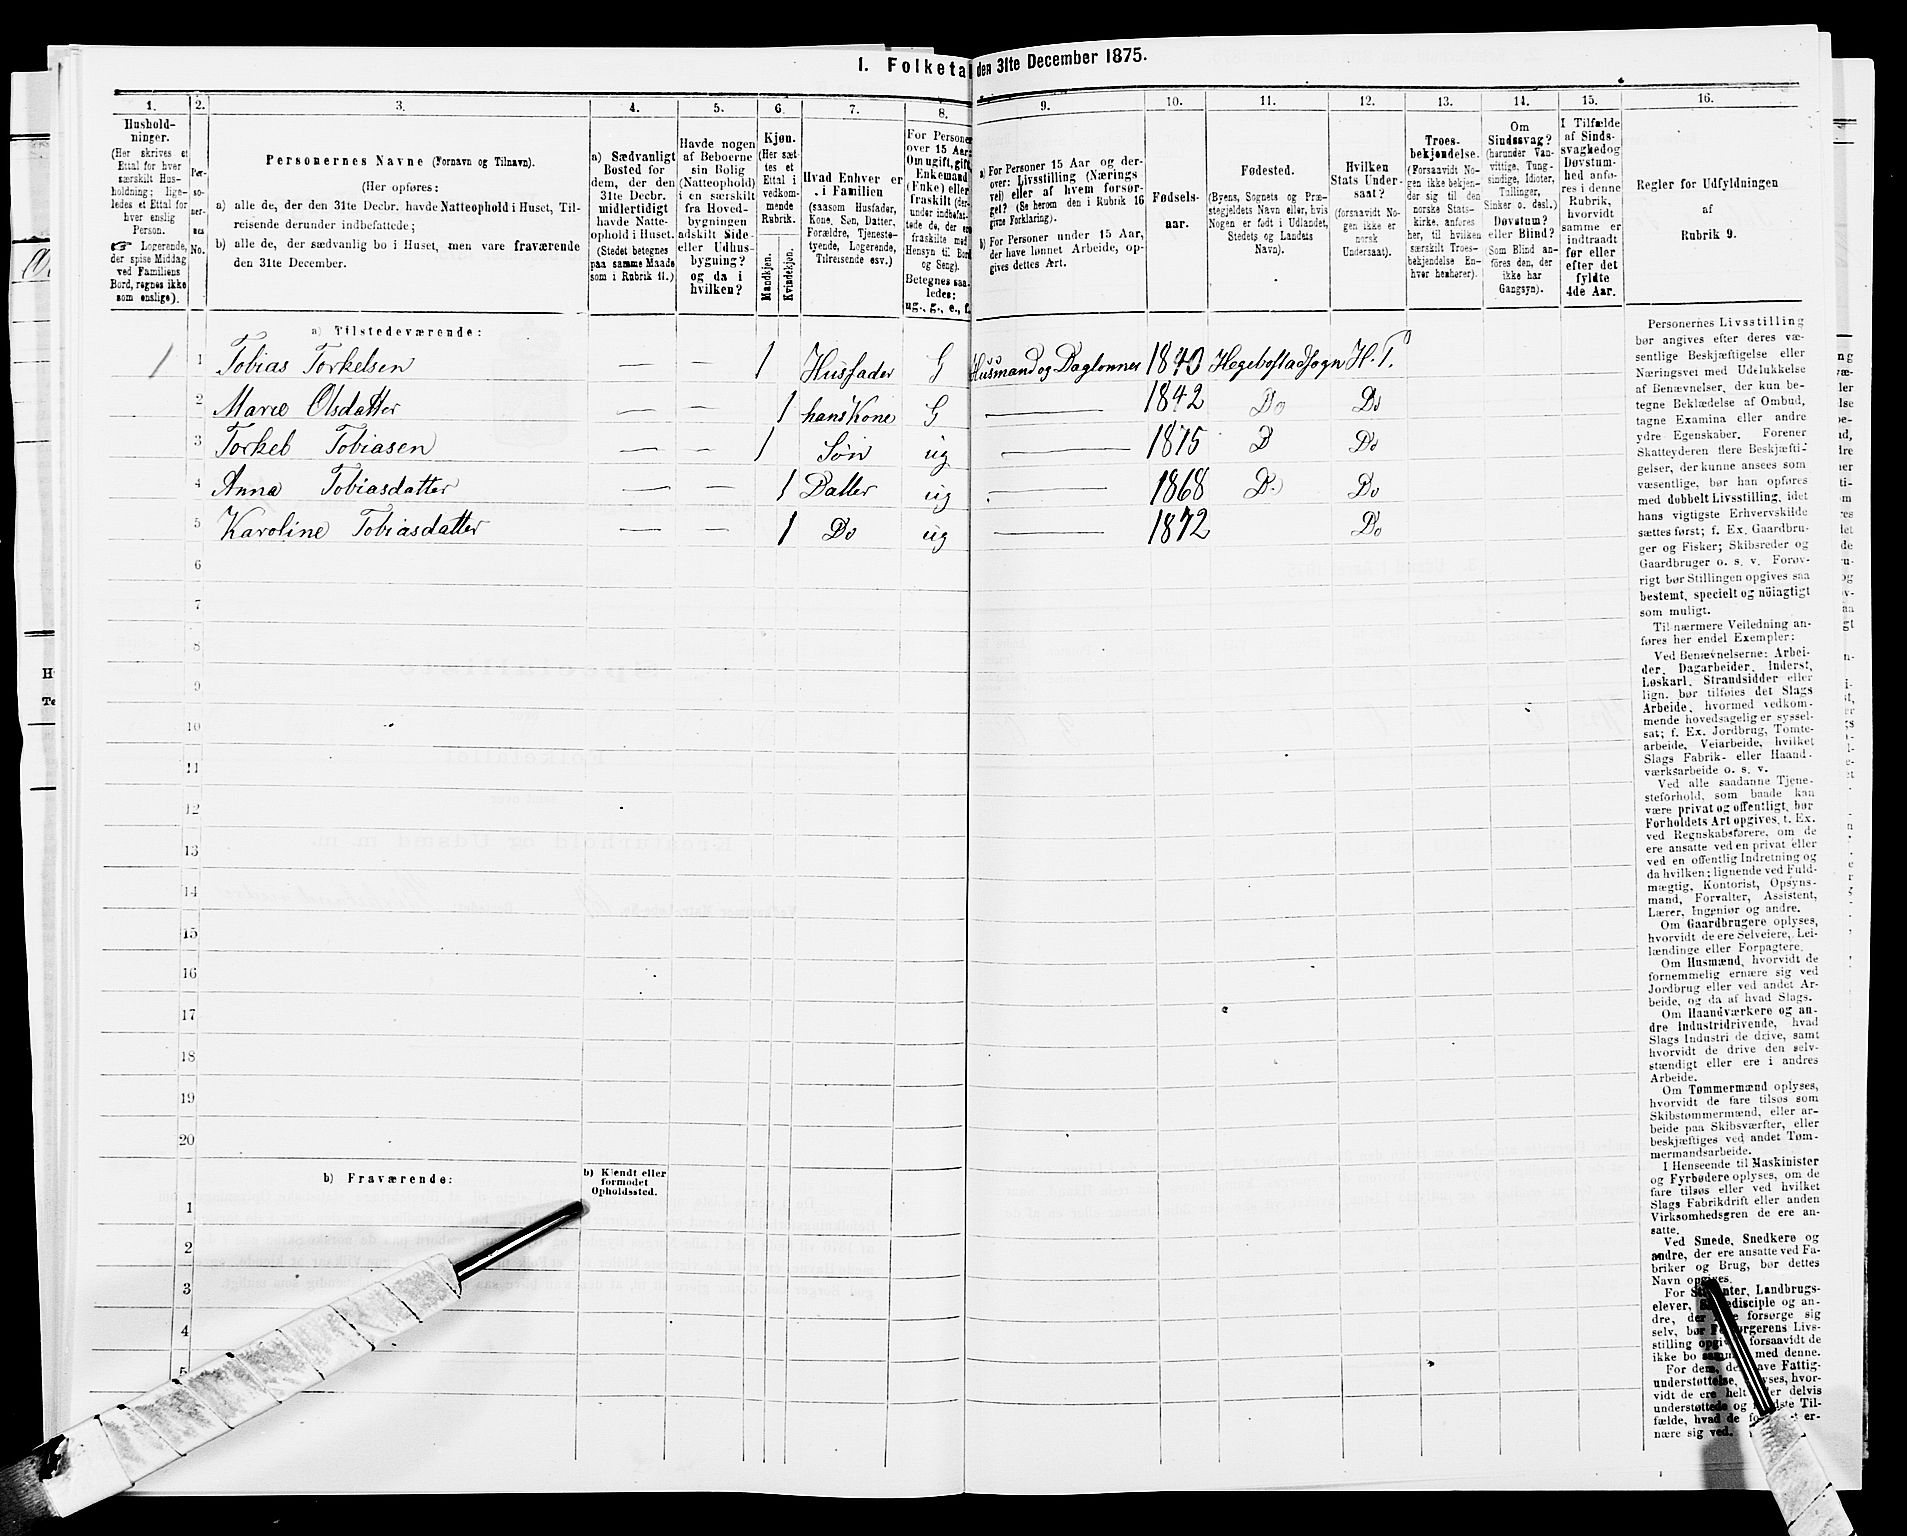 I. Folketal den 31te December 1875.
1. 2. 3. 4. 5. 6. 7. 8. 9. 10. 11. 12. 13. 14. 15. 16.
Hushold-
ninger.
(Her skrives et
Ettal for hver
særskilt Hus-
holdning; lige-
ledes et Ettal for
hver enslig
Person.
☞ Logerende,
der spise Middag
ved Familiens
Bord, regnes ikke
som enslige).
Per-
so-
ner-
nes
No.
Personernes Navne (Fornavn og Tilnavn).
(Her opføres:
a) alle de, der den 31te Decbr. havde Natteophold i Huset, Til-
reisende derunder indbefattede;
b) alle de, der sædvanlig bo i Huset, men vare fraværende
den 31te December.
a) Sædvanligt
Bosted for
dem, der den
31te Decbr.
midlertidigt
havde Natte-
ophold i Huset.
(Stedet betegnes
paa samme Maade
som i Rubrik 11.)
Havde nogen
af Beboerne
sin Bolig
(Natteophold)
i en særskilt
fra Hoved-
bygningen
adskilt Side-
eller Udhus-
bygning?
og da i
hvilken?
Kjøn.
(Her sæt-
tes et
Ettal i
vedkom-
mende
Rubrik.
Mandkjøn.
Kvindekjøn.
Hvad Enhver er
i Familien
(saasom Husfader,
Kone, Søn, Datter,
Forældre, Tjeneste-
tyende, Logerende,
Tilreisende osv.)
For Personer
over 15 Aar:
Om ugift, gift,
Enkemand
(Enke) eller
fraskilt (der-
under indbefat-
tede de, der ere
fraskilte med
Hensyn til Bord
og Seng).
Betegnes saa-
ledes:
ug., g., e., f.
a) For Personer 15 Aar og der-
over: Livsstilling (Nærings
vei) eller af hvem forsør-
get? (Se herom den i Rubrik 16
givne Forklaring).
b) For Personer under 15 Aar,
der have lønnet Arbeide, op-
gives dettes Art.
Fødsels-
aar.
Fødested.
(Byens, Sognets og Præ-
stegjeldets Navn eller, hvis
Nogen er født i Udlandet,
Stedets og Landets
Navn).
Hvilken
Stats Under-
saat?
(forsaavidt No-
gen ikke er
norsk
Undersaat).
Troes-
bekjendelse.
(Forsaavidt No-
gen ikke bekjen-
der sig til den
norske Stats-
kirke, anføres
her, til hvilken
særskilt Troes-
bekjendelse En-
hver henhører).
Om
Sindssvag?
(herunder Van-
vittige, Tung-
sindige, Idioter,
Tullinger,
Sinker o. desl.)
Døvstum?
eller Blind?
(Som Blind an-
føres den, der
ikke har
Gangsyn).
I Tilfælde
af Sinds-
svaghed og
Døvstum-
hed anfø-
res i denne
Rubrik,
hvorvidt
samme er
indtraadt
før eller
efter det
fyldte
4de Aar.
Regler for Udfyldningen
af
Rubrik 9.
a) Tilstedeværende:
1 1 Tobias Torkelsen — — 1 Husfader G Husmand og Daglønner 1840 Hegebostadsogn H. P.
2 Marie Olsdatter — — 1 hans Kone G — 1842 Do Do
3 Torkel Tobiasen — — 1 Søn ug — 1875 D Do
4 Anna Tobiasdatter — — 1 Datter ug — 1868 Do Do
5 Karoline Tobiasdatter — — 1 Do ug — 1872 Do
6
7
8
9
10
11
12
13
14
15
16
17
18
19
20
b) Fraværende:
b) Kjendt eller
formodet
Opholdssted.
1
2
3
4
5
Personernes Livsstilling
bør angives efter deres væ-
sentlige Beskjæftigelse eller
Næringsvei med Udelukkelse
af Benævnelser, der kun be-
tegne Beklædelse af Ombud,
tagne Examina eller andre
ydre Egenskaber. Forener
Skatteyderen flere Beskjæfti-
gelser, der kunne ansees som
væsentlige, bør han opføres
med dobbelt Livsstilling, idet
hans vigtigste Erhvervskilde
sættes først; f. Ex. Gaardbru-
ger og Fisker; Skibsreder og
Gaardbruger o. s. v. Forøv-
rigt bør Stillingen opgives saa
bestemt, specielt og nöiagtigt
som muligt.
Til nærmere Veiledning an-
føres her endel Exempler:
Ved Benævnelserne: Arbei-
der, Dagarbeider, Inderst,
Løskarl, Strandsidder eller
lign. bør tilføies det Slags
Arbeide, hvormed vedkom-
mende hovedsagelig er syssel-
sat; f. Ex. Jordbrug, Tomte-
arbeide, Veiarbeide, hvilket
Slags Fabrik- eller Haand-
værksarbeide o. s. v.
Ved alle saadanne Tjene-
steforhold, som baade kan
være privat og offentligt, bør
Forholdets Art opgives, f. Ex.
ved Regnskabsførere, om de
ere ansatte ved en privat eller
ved en offentlig Indretning og
da hvilken; lignende ved Fuld-
mægtig, Kontorist, Opsyns-
mand, Forvalter, Assistent,
Lærer, Ingeniør og andre.
Om Gaardbrugere oplyses,
hvorvidt de ere Selveiere, Lei-
lændinge eller Forpagtere.
Om Husmænd, hvorvidt de
fornemmelig ernære sig ved
Jordbrug eller ved andet Ar-
beide, og da af hvad Slags.
Om Haandværkere og an-
dre Industridrivende, hvad
Slags Industri de drive, samt
hvorvidt de drive den selv-
stændigt eller ere i andres
Arbeide.
Om Tømmermænd oplyses,
hvorvidt de fare tilsøs som
Skibstømmermænd, eller ar-
beide paa Skibsværfter, eller
beskjæftiges ved andet Tøm-
mermandsarbeide.
I Henseende til Maskinister
og Fyrbødere oplyses, om de
fare tilsøs eller ved hvilket
Slags Fabrikdrift eller anden
Virksomhedsgren de ere an-
satte.
Ved Smede, Snedkere og
andre, der ere ansatte ved Fa-
briker og Brug, bør dettes
Navn opgives.
For Landbrugs-
elever, og an-
dre, forsørge sig
selv, bør Livs-
stilling forsaavidt de
ikke bo med denne.
For dem, Fattig-
understøttelse, hvor-
vidt de ere helt delvis
understøttede og Til-
fælde, hvad de er-
nære sig ved.